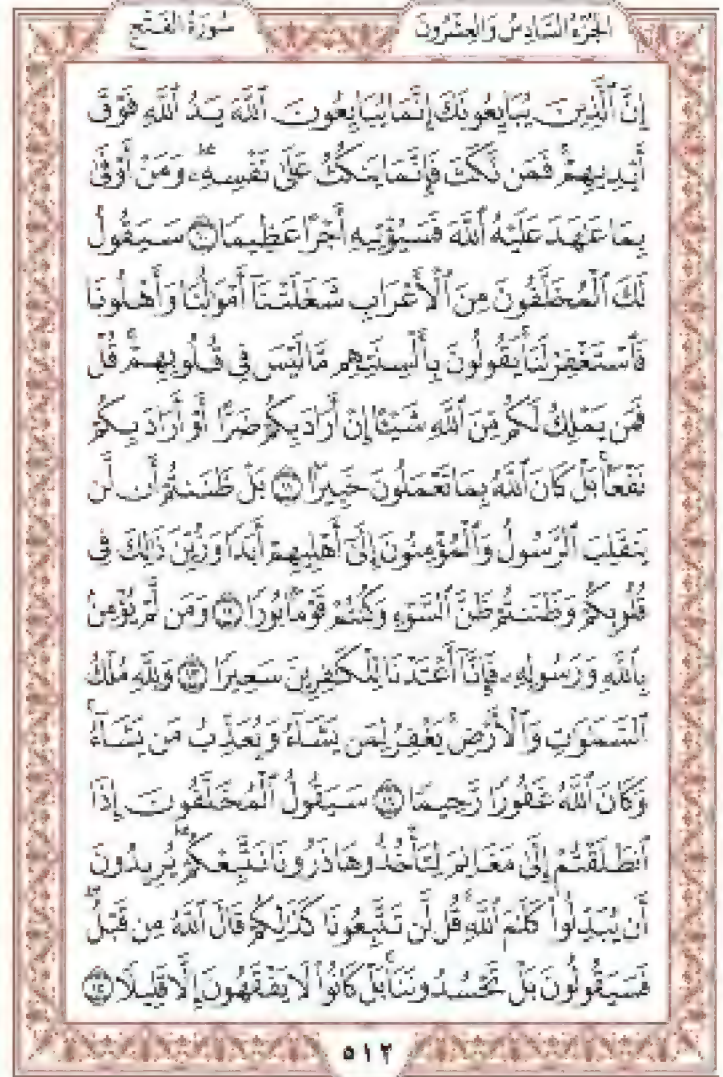 سُورَةُ الفَتْحِ
الجُزْءُ السَّادِسُ وَالعِشْرُونَ
إِنَّ ٱلَّذِينَ يُبَايِعُونَكَ إِنَّمَا يُبَايِعُونَ ٱللَّهَ يَدُ ٱللَّهِ فَوْقَ
أَيْدِيهِمْ فَمَن نَّكَثَ فَإِنَّمَا يَنكُثُ عَلَىٰ نَفْسِهِۦ وَمَنْ أَوْفَىٰ
بِمَا عَٰهَدَ عَلَيْهُ ٱللَّهَ فَسَيُؤْتِيهِ أَجْرًا عَظِيمًا ١٠ سَيَقُولُ
لَكَ ٱلْمُخَلَّفُونَ مِنَ ٱلْأَعْرَابِ شَغَلَتْنَآ أَمْوَٰلُنَا وَأَهْلُونَا
فَٱسْتَغْفِرْ لَنَا يَقُولُونَ بِأَلْسِنَتِهِم مَّا لَيْسَ فِى قُلُوبِهِمْ قُلْ
فَمَن يَمْلِكُ لَكُم مِّنَ ٱللَّهِ شَيْـًٔا إِنْ أَرَادَ بِكُمْ ضَرًّا أَوْ أَرَادَ بِكُمْ
نَفْعًۢا بَلْ كَانَ ٱللَّهُ بِمَا تَعْمَلُونَ خَبِيرًۢا ١١ بَلْ ظَنَنتُمْ أَن لَّن
يَنقَلِبَ ٱلرَّسُولُ وَٱلْمُؤْمِنُونَ إِلَىٰٓ أَهْلِيهِمْ أَبَدًا وَزُيِّنَ ذَٰلِكَ فِى
قُلُوبِكُمْ وَظَنَنتُمْ ظَنَّ ٱلسَّوْءِ وَكُنتُمْ قَوْمًۢا بُورًا ١٢ وَمَن لَّمْ يُؤْمِنۢ
بِٱللَّهِ وَرَسُولِهِۦ فَإِنَّآ أَعْتَدْنَا لِلْكَٰفِرِينَ سَعِيرًا ١٣ وَلِلَّهِ مُلْكُ
ٱلسَّمَٰوَٰتِ وَٱلْأَرْضِ يَغْفِرُ لِمَن يَشَآءُ وَيُعَذِّبُ مَن يَشَآءُ
وَكَانَ ٱللَّهُ غَفُورًا رَّحِيمًا ١٤ سَيَقُولُ ٱلْمُخَلَّفُونَ إِذَا
ٱنطَلَقْتُمْ إِلَىٰ مَغَانِمَ لِتَأْخُذُوهَا ذَرُونَا نَتَّبِعْكُمْ يُرِيدُونَ
أَن يُبَدِّلُوا۟ كَلَٰمَ ٱللَّهِ قُل لَّن تَتَّبِعُونَا كَذَٰلِكُمْ قَالَ ٱللَّهُ مِن قَبْلُ
فَسَيَقُولُونَ بَلْ تَحْسُدُونَنَا بَلْ كَانُوا۟ لَا يَفْقَهُونَ إِلَّا قَلِيلًا ١٥
٥١٢